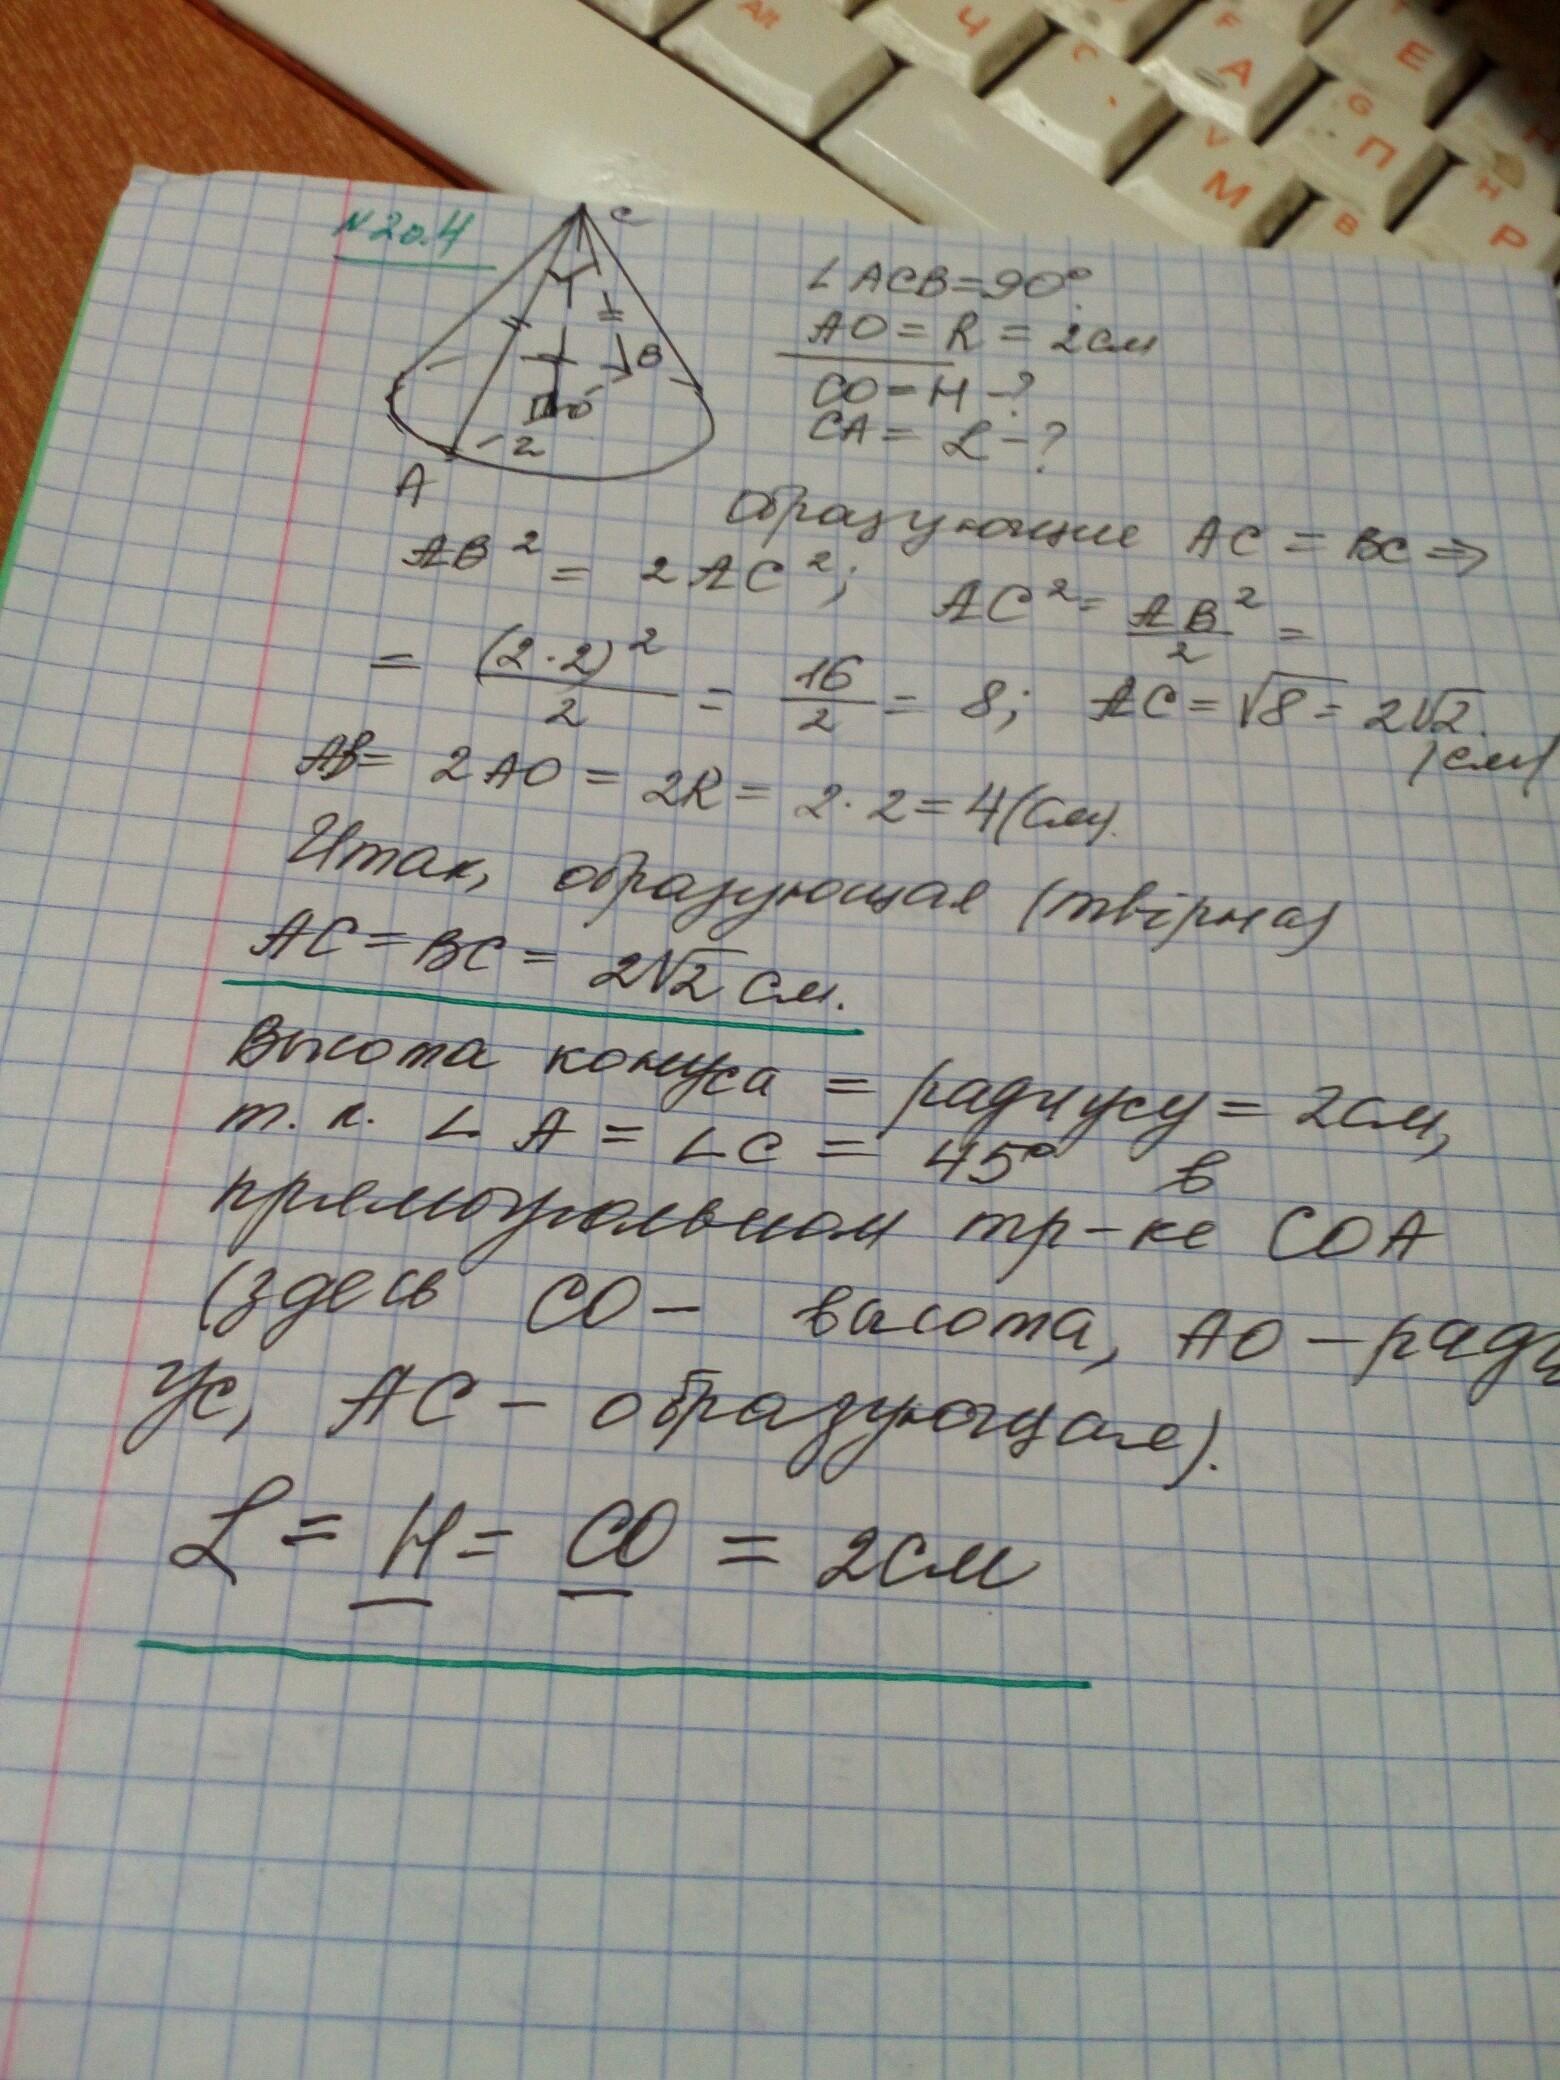 Alt
Ч
С
F
А
Е
V
М
G
П
В
H
Р
N 20.4
C
B
O
2
A
∠ ACB = 90°.
AO = R = 2см
CO = H - ?
CA = L - ?
Образующие AC = BC ⇒
AB² = 2AC²; AC² = AB²/2 =
= (2·2)²/2 = 16/2 = 8; AC = √8 = 2√2.
(см)
AB = 2AO = 2R = 2·2 = 4(см).
Итак, образующая (твірна)
AC = BC = 2√2 см.
Высота конуса = радиусу = 2см,
т.к. ∠ A = ∠ C = 45° в
прямоугольном тр-ке COA
(здесь CO - высота, AO - ради
ус, AC - образующая).
L = H = CO = 2см